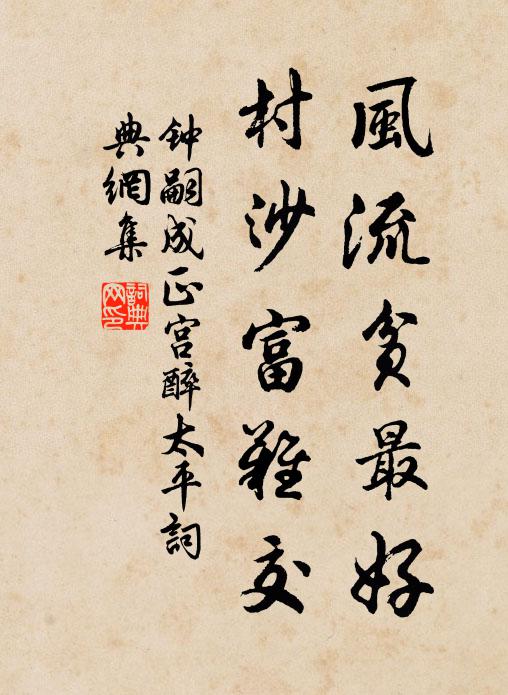 風流貧最好
村沙富難交
鈡嗣成正宮醉太平詞
典網集
詞典
网印